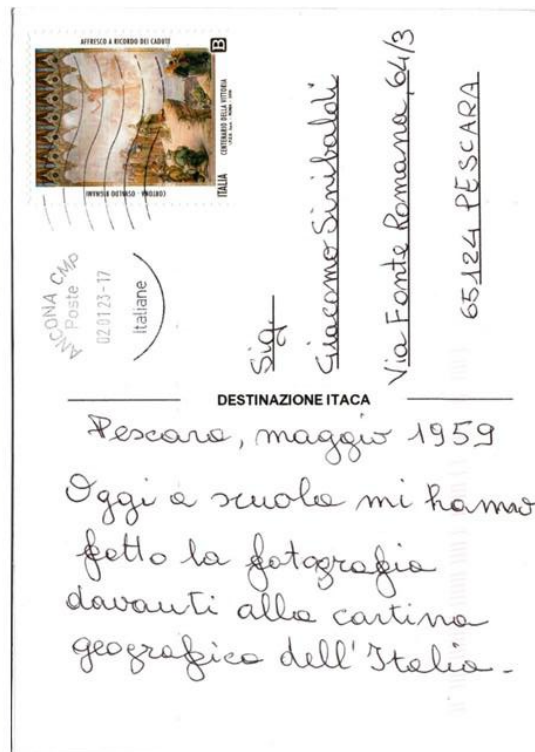 AFFRESCO A RICORDO DEI CADUTI
B
CENTENARIO DELLA VITTORIA
ITALIA
CORTONA - OSVALDO BIGNAMI
ANCONA CMP
Poste
02 01 23-17
Italiane
Sig.
Giacomo Sinibaldi
Via Fonte Romana, 64/3
65124 PESCARA
DESTINAZIONE ITACA
Pescara, maggio 1959
Oggi a scuola mi hanno
fatto la fotografia
davanti alla cartina
geografica dell'Italia.